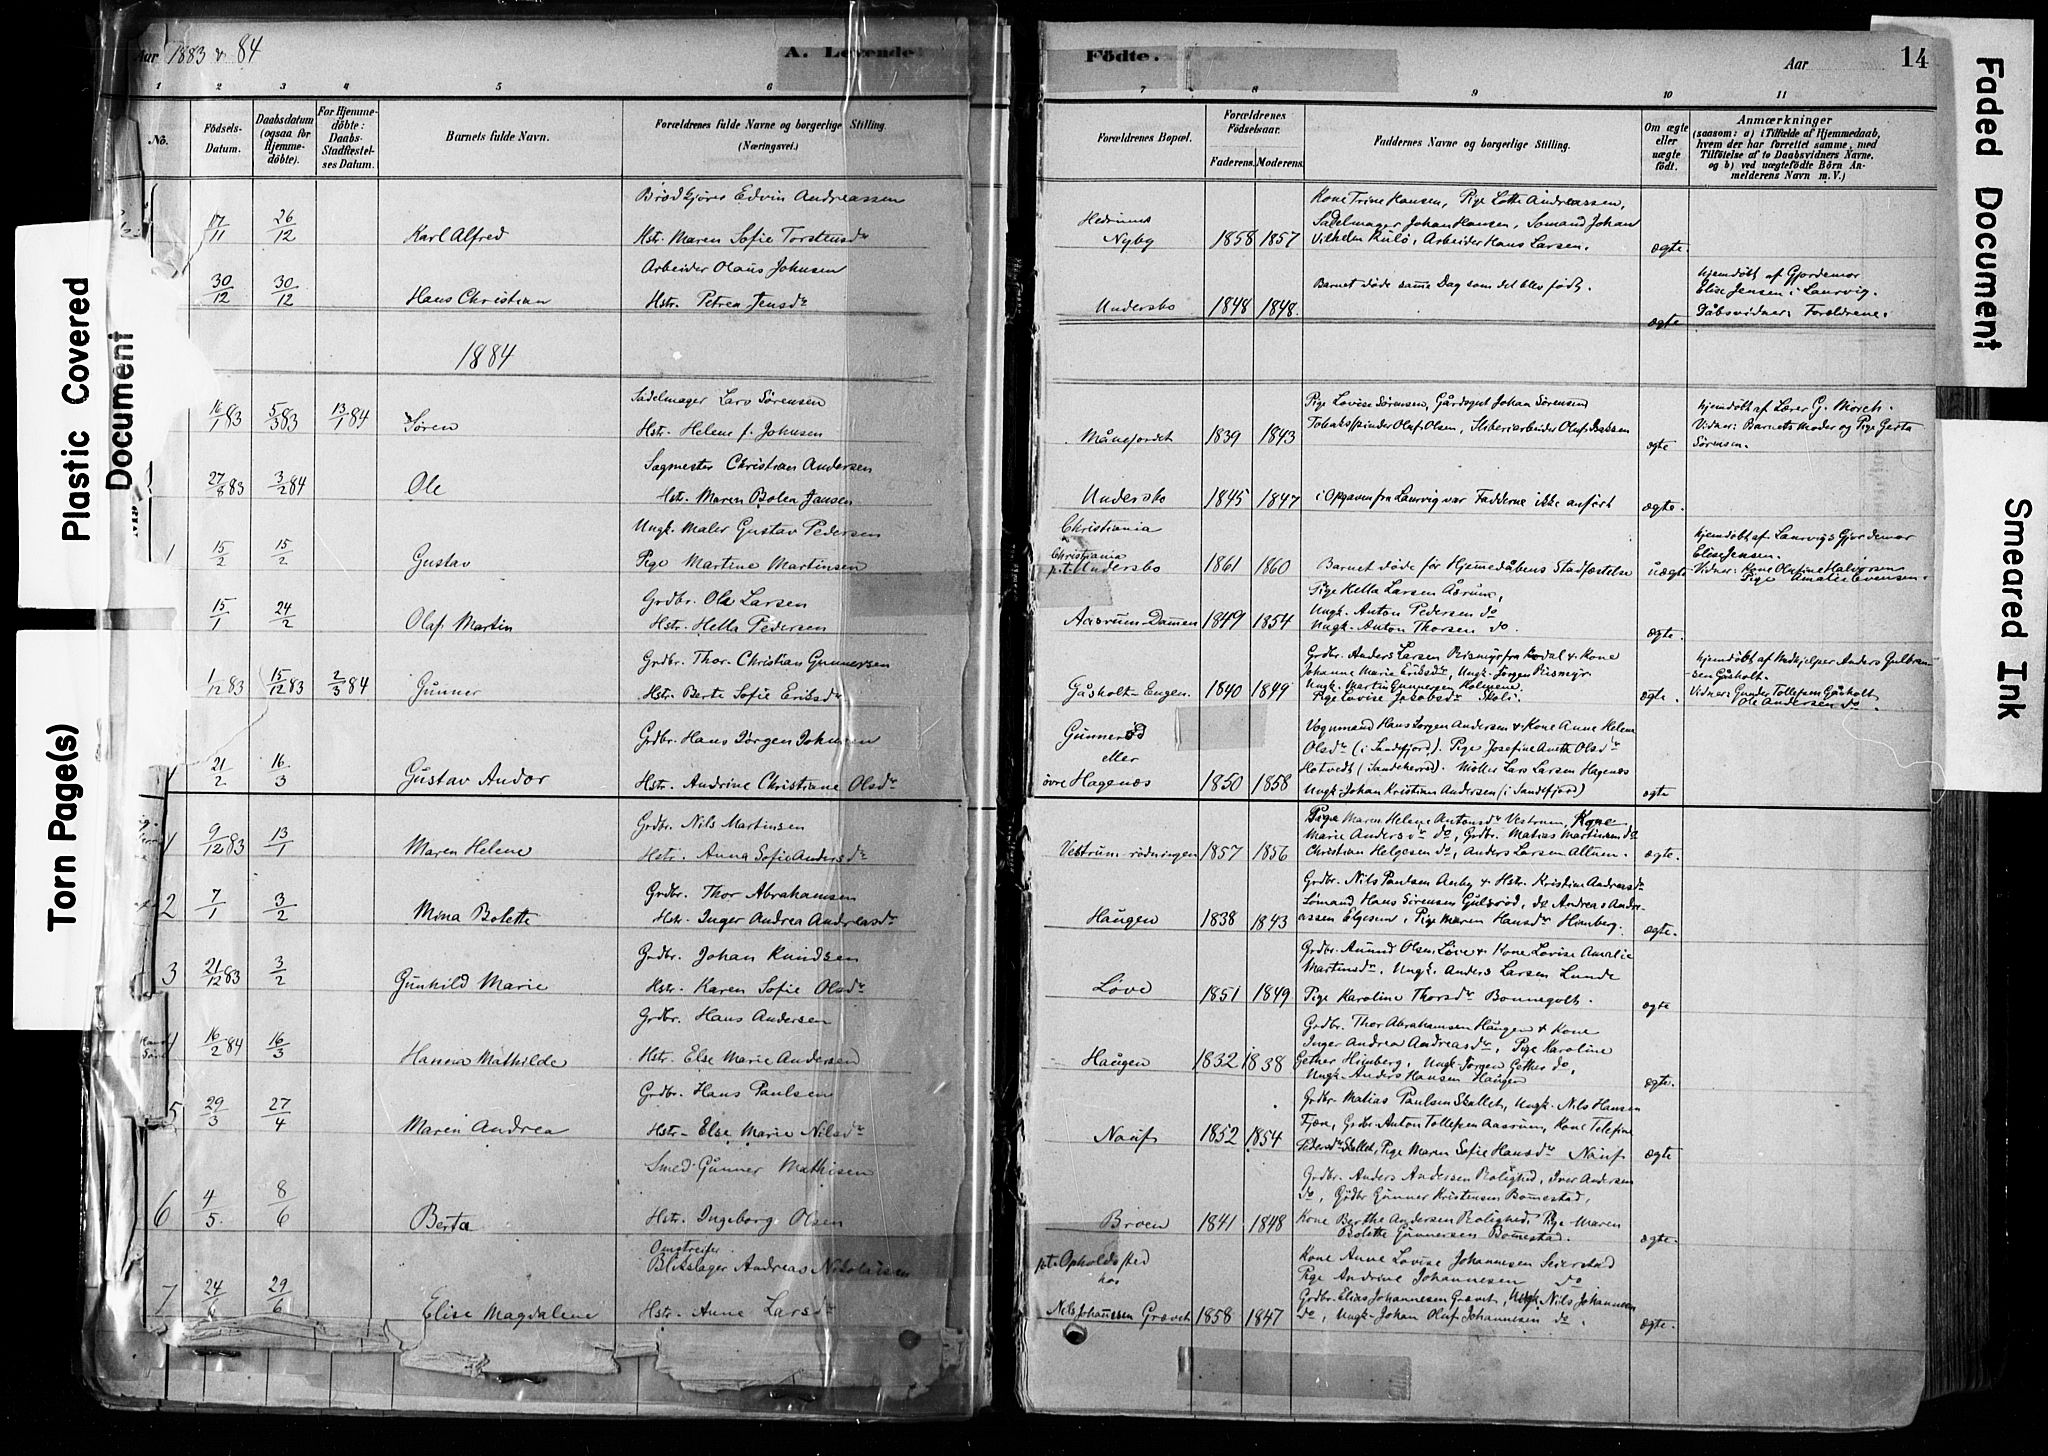 Aar 1883 & 84
A. Levende
Födte.
Aar
14
1 2 3 4 5 6 7 8 9 10 11
No.
Födsels-Datum.
Daabsdatum (ogsaa for Hjemmedöbte).
For Hjemmedöbte: Daabs-Stadfæstelses Datum.
Barnets fulde Navn.
Forældrenes fulde Navne og borgerlige Stilling. (Næringsvei.)
Forældrenes Bopæl.
Forældrenes Födselsaar.
Faderens. Moderens.
Faddernes Navne og borgerlige Stilling.
Om ægte eller uægte födt.
Anmærkninger
(saasom: a) i Tilfælde af Hjemmedaab, hvem der har forrettet samme, med Tilföielse af to Daabsvidners Navne, og b) ved uægtefödte Börn Anmelderens Navn m. V.)
Brødkjører Edvin Andreassen
17/11 26/12 Karl Alfred Hstr. Maren Sofie Torstensdr
Hedrums Nyby 1858 1857
Kone Trine Hansen, Pige Lotte Andreassen,
Sadelmager Johan Hansen, Sømand Johan
Vilhelm Rulö, Arbeider Hans Larsen.
ægte.
Arbeider Olaus Johnsen
30/12 30/12 Hans Christian Hstr. Petrea Jensdr
Undersbo 1848 1848.
Barnet døde samme Dag som det blev født.
ægte
hjemdøbt af Gjordemor
Elise Jensen i Laurvig.
Dåbsvidner: Forældrene.
1884
Sadelmager Lars Sørensen
16/1 83 5/3 83 13/1 84 Søren Hstr. Helene f. Johnsen
Månejordet 1839 1843
Pige Lovise Sørensen, Gårdsgut Johan Sørensen
Tobaksspinder Oluf Olsen, Oluf Isaksen
ægte
hjemdøbt af Lærer G. Mørch.
Vidner: Barnets Moder og Pige Gerta
Sørensen.
Sagmester Christian Andersen
27/8 83 3/2 84 Ole Hstr. Maren Bolea Jansen
Undersbo 1845 1847
i Opgaven fra Laurvig var Fadderne ikke anført
ægte.
Ungk. Maler Gustav Pedersen
1 15/2 15/2 Gustav Pige Martine Martinsen
Christiania
Christiania
p.t. Undersbo 1861 1860
Barnet døde før Hjemmedåbens Stadfæstelse
uægte
hjemdøbt af Laurvigs Gjordemor
Elise Jensen.
Vidner: Kone Olufine Halvorsen
Pige Amalie Evensen.
Grdbr. Ole Larsen
15/1 24/2 Olaf Martin Hstr. Hella Pedersen
Aasrum-Dammen 1849 1854
Pige Hella Larsen Åsrum,
Ungk. Anton Pedersen do
Ungk. Anton Thorsen do.
ægte.
Grdbr. Thor Christian Gunnersen
1/12 83 15/12 83 2/3 84 Gunner Hstr. Berte Sofie Eriksdr
Gåsholt-Engen. 1840 1849
Grdbr. Anders Larsen Bismyr fra Kodal & Kone
Johanne Marie Eriksdr, Ungk. Jørgen Bismyr
Ungk. Martin Gunnersen Holmene.
Pige Lovise Jacobsdr Skoli.
ægte.
hjemdøbt af Medhjelper Anders Gulbran-
sen Gåsholt.
Vidner: Gunder Tollefsen Gåsholt
Ole Andersen do.
Grdbr. Hans Jørgen Johnsen
21/2 16/3 Gustav Andor Hstr. Andrine Christiane Olsdr
Gunnerød
eller
øvre Hagenæs 1850 1858
Vognmand Hans Jørgen Andersen & Kone Anne Helene
Olsdr (i Sandefjord). Pige Josefine Anette Olsdr
Hotvedt (Sandeherred). Møller Lars Larsen Hagenæs
Ungk. Johan Kristian Andersen (i Sandefjord)
ægte
Grdbr. Nils Martinsen
1 9/12 83 13/1 Maren Helene Hstr. Anna Sofie Andersdr
Vestrum rødningen 1857 1856
Pige Maren Helene Antonsdr Vestrum, Kone
Marie Andersdr do, Grdbr. Matias Martinsen do
Christian Helgesen do, Anders Larsen Allum.
ægte.
Grdbr. Thor Abrahamsen
2 7/1 3/2 Mina Bolette Hstr. Inger Andrea Andreasdr
Haugen 1838 1843
Grdbr. Nils Paulsen Auby & Hstr. Kristine Andreasdr
Sømand Hans Sørensen Gulsrød, do Andreas Andre-
assen Elgesem, Pige Maren Hansdr Himberg.
ægte.
Grdbr. Johan Knudsen
3 21/12 83 3/2 Gunhild Marie Hstr. Karen Sofie Olsdr
Løve 1851 1849
Grdbr. Amund Olsen Løve & Kone Lovise Amalie
Martinsdr. Ungk. Anders Larsen Lunde
Pige Karoline Thorsdr Bonnegolt.
ægte
Grdbr. Hans Andersen
4 16/2 84 16/3 Hanna Mathilde Hstr. Else Marie Andersen
Haugen 1832 1838
Grdbr. Thor Abrahamsen Haugen & Kone
Inger Andrea Andreasdr, Pige Karoline
Gether Himberg, Ungk. Jørgen Gether do,
Ungk. Anders Hansen Haugen
ægte.
Grdbr. Hans Paulsen
5 29/3 27/4 Maren Andrea Hstr. Else Marie Nilsdr
Nauf 1852 1854
Grdbr. Matias Paulsen Skallet, Ungk. Nils Hansen
Fjære, Grdbr. Anton Tollefsen Aasrum, Kone Telefine
Pedersdr Skallet, Pige Maren Sofie Hansdr Nauf
ægte
Smed Gunner Mathisen
6 4/5. 8/6 Berta Hstr. Ingeborg Olsen
Broen 1841 1848
Grdbr. Anders Andersen Rolighed, Iver Andersen
do, Grdbr Gunner Kristensen Bommestad,
Kone Berthe Andersen Rolighed, Pige Maren
Bolette Gunnersen Bommestad.
ægte.
Omstreifer
Blikslager Andreas Nikolaisen
7 24/6 29/6 Elise Magdalene Hstr. Anne Larsdr
pt. Opholdssted
hos
Nils Johannssen Grævet 1858 1847
Kone Anne Lovise Johannesen Seierstad
Pige Andrine Johannesen do
Grdbr. Elias Johannesen Grævet, Ungk. Nils Johannesen
do, Ungk. Johan Oluf Johannesen do.
ægte.
Plastic Covered Document
Torn Page(s)
Faded Document
Smeared Ink